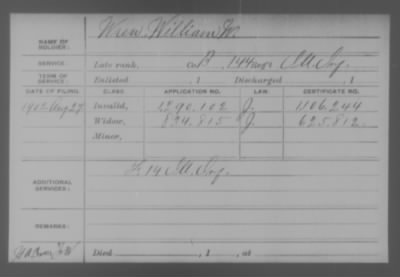 NAME OF SOLDIER: Wren, William W.
SERVICE: Late rank, Co. B, 144 Reg't Ill. Inf.
TERM OF SERVICE: Enlisted , 1 Discharged , 1
DATE OF FILING. CLASS. APPLICATION NO. LAW. CERTIFICATE NO.
1902 Aug 27 Invalid, 1290.102 J. 1106.244
Widow, 834.815 J. 625.812.
Minor,
ADDITIONAL SERVICES: F. 14 Ill. Inf.
REMARKS:
Died , 1 , at